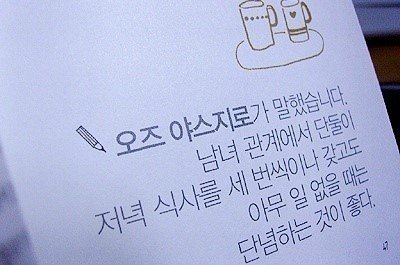 오즈 야스지로가 말했습니다.
남녀 관계에서 단둘이
저녁 식사를 세 번씩이나 갖고도
아무 일 없을 때는
단념하는 것이 좋다.
47